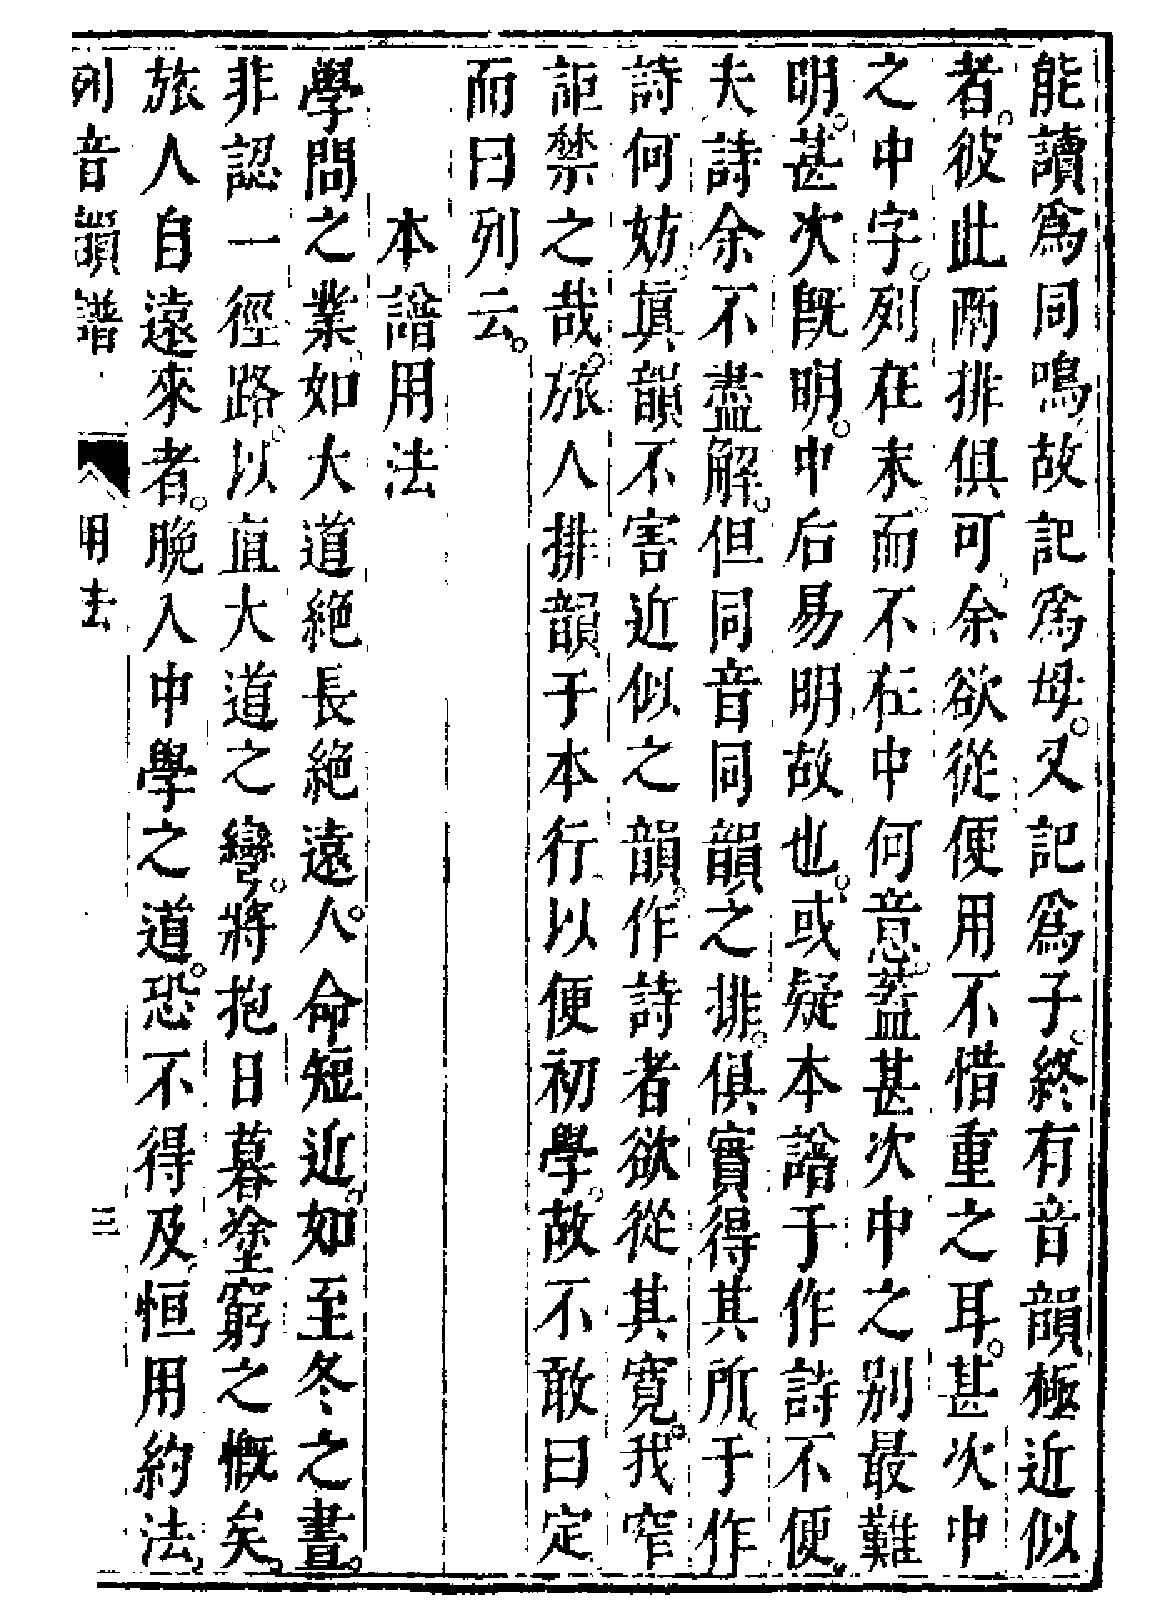 能讀爲同鳴故記爲母。又記爲子。終有音韻極近似
者。彼此兩排俱可。余欲從便用不惜重之耳。甚次中
之中字。列在末。而不在中何意。蓋甚次中之別最難
明。甚次旣明。中后易明故也。或疑本譜于作詩不便。
夫詩余不盡解。但同音同韻之排。俱實得其所。于作
詩何妨。眞韻不害近似之韻。作詩者欲從其寬。我窄
詎禁之哉。旅人排韻于本行以便初學。故不敢曰定
而曰列云。
本譜用法
學問之業。如大道絕長絕遠。人命短近。如至冬之晝。
非認一徑路。以直大道之彎。將抱日暮塗窮之慨矣。
旅人自遠來者。晩入中學之道。恐不得及。恒用約法。
列音韻譜 用法 三